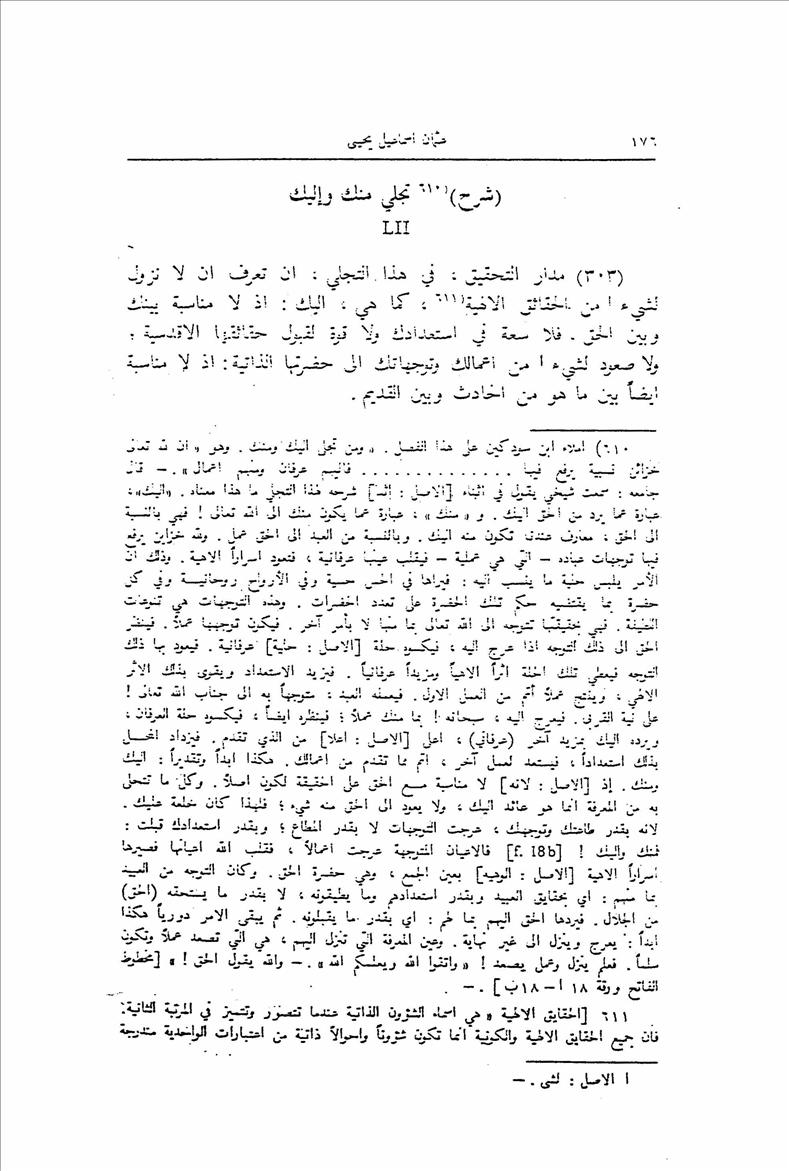 ١٧٦ عثمان اسماعيل يحيى
(شرح)٦١٠) تجلي منك وإليك
LII
(٣٠٣) مدار التحقيق ، في هذا التجلي ، ان تعرف ان لا نزول
لشيء أ من الحقائق الالهية٦١١) ، كما هي ، اليك : اذ لا مناسبة بينك
وبين الحق . فلا سعة في استعدادك ولا قوة لقبول حقائقها الاقدسية ؛
ولا صعود لشيء أ من اعمالك وتوجهاتك الى حضرتها الذاتية : اذ لا مناسبة
ايضاً بين ما هو من الحادث وبين القديم .
٦١٠) املاء ابن سودكين على هذا الفصل . « ومن تجلى اليك ومنك . وهو « ان لله تعالى
خزائن نسبية يرفع فيها . . . . . . . . . . . . . فانهم عرفان ومنهم اعمال » . – قال
جامعه : سمعت شيخي يقول في اثناء [الاصل : اثنا] شرحه لهذا التجلي ما هذا معناه . « اليك » ،
عبارة عما يرد من الحق اليك . و « منك » ، عبارة عما يكون منك الى الله تعالى ! فهي بالنسبة
الى الحق ، معارف عندنا تكون منه اليك . وبالنسبة من العبد الى الحق عمل . ولله خزاين يرفع
فيها توجهات عباده – التي هي عملية – فيقلب عينها عرفانية ، فتعود اسراراً الاهية . وذلك ان
الأمر يلبس حلية ما ينسب اليه : فيراها في الحس حسية وفي الأرواح روحانية وفي كل
حضرة بما يقتضيه حكم تلك الحضرة على تعدد الحضرات . وهذه التوجهات هي تنوعات
اللطيفة . فهي حقيقتها تتوجه الى الله تعالى بما منها لا بأمر آخر . فيكون توجهها عملاً . فينظر
الحق الى ذلك التوجه اذا عرج اليه ، فيكسوه حلة [الاصل : حلية] عرفانية . فيعود بها ذلك
التوجه فيعطي تلك الحلة اثراً الاهياً ومزيداً عرفانياً . فيزيد الاستعداد ويقوى بذلك الاثر
الالهي ، وينتج عملاً أتم من العمل الاول . فيعمله العبد ، متوجهاً به الى جناب الله تعالى !
على نية القربى . فيعرج اليه ، سبحانه ! بما منك عملاً ؛ فينظره ايضاً ، فيكسوه حلة العرفان ،
ويرده اليك بمزيد آخر (عرفاني) ، اعلى [الاصل : اعلا] من الذي تقدم . فيزداد المحل
بذلك استعداداً ، فيستعد لعمل آخر ، اتم مما تقدم من اعمالك . هكذا ابداً وتقديراً : اليك
ومنك . إذ [الاصل : لانه] لا مناسبة مع الحق على الحقيقة لكون اصلاً . وكل ما تتحلى
به من المعرفة انما هو عائد اليك ، ولا يعود الى الحق منه شيء ؛ فلهذا كان خلعة عليك .
لانه بقدر طاعتك وتوجهك ، عرجت التوجهات لا بقدر المطاع ؛ وبقدر استعدادك قبلت :
فمنك واليك ! [f. 18b] فالاعيان المتوجهة عرجت اعمالاً ، فقلب الله اعيانها فصيرها
اسراراً الاهية [الاصل : الوهيه] بعين الجمع ، وهي حضرة الحق . وكان التوجه من العبيد
بما منهم : اي بحقايق العبيد وبقدر استعدادهم وما يطيقونه ، لا بقدر ما يستحقه (الحق)
من الجلال . فيردها الحق اليهم بما لهم : اي بقدر ما يقبلونه . ثم يبقى الامر دورياً هكذا
ابداً : يعرج وينزل الى غير نهاية . وعين المعرفة التي تنزل اليهم ، هي التي تصعد عملاً وتكون
سلماً . فعلم ينزل وعمل يصعد ! « واتقوا الله ويعلمكم الله » . – والله يقول الحق ! » [مخطوط
الفاتح ورقة ١٨ أ – ١٨ب] . –
٦١١ [الحقايق الالهية « هي اسماء الشؤون الذاتية عندما تتصور وتتميز في المرتبة الثانية :
فان جميع الحقايق الالهية والكونية انما تكون شؤوناً واحوالاً ذاتية من اعتبارات الواحدية مندرجة
أ الاصل : لشى . –